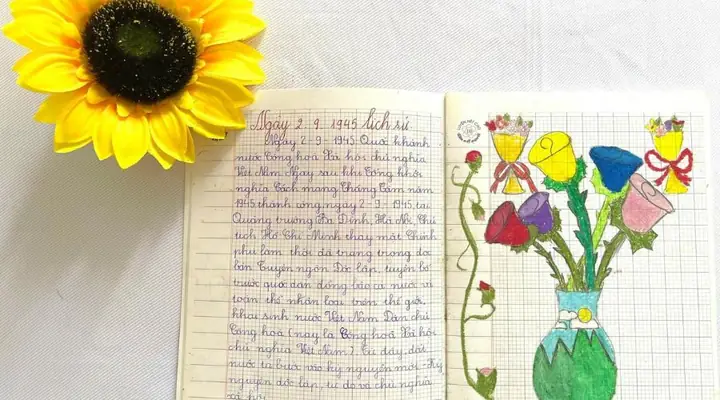 Ngày 2. 9. 1945 lịch sử
Ngày 2-9-1945 Quốc khánh
nước Cộng hoà Xã hội chủ nghĩa
Việt Nam. Ngay sau khi Tổng khởi
nghĩa Cách mạng Tháng Tám năm
1945 thành công, ngày 2-9-1945, tại
Quảng trường Ba Đình, Hà Nội, Chủ
tịch Hồ Chí Minh thay mặt Chính
phủ lâm thời đã trang trọng đọc
bản Tuyên ngôn Độc lập, tuyên bố
trước quốc dân đồng bào cả nước và
toàn thể nhân loại trên thế giới,
khai sinh nước Việt Nam Dân chủ
Cộng hoà (nay là Cộng hoà Xã hội
chủ nghĩa Việt Nam). Từ đây, đất
nước ta bước vào kỷ nguyên mới - Kỷ
nguyên độc lập, tự do và chủ nghĩa
xã hội